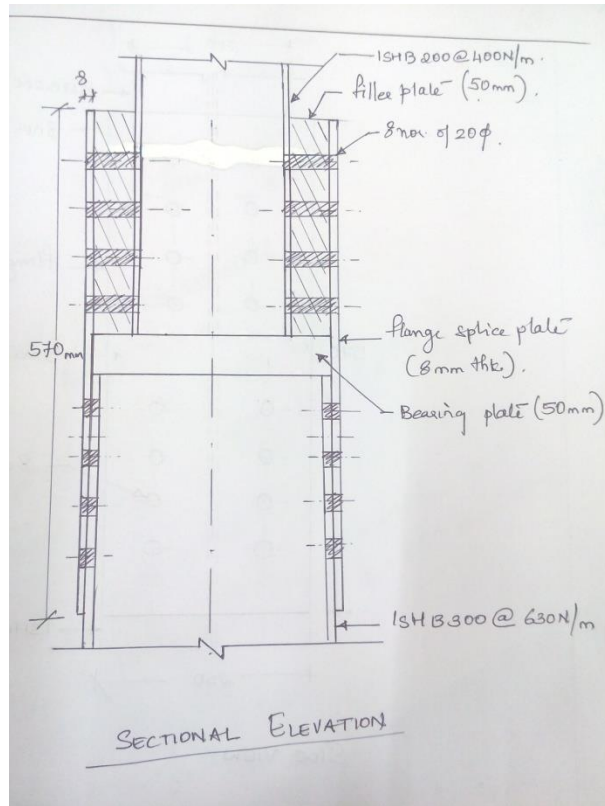 ISHB 200 @ 400N/m.
8
filler plate (50mm).
8 nos. of 20φ.
570mm
flange splice plate
(8mm thk).
Bearing plate (50mm)
ISHB300 @ 630N/m
SECTIONAL ELEVATION